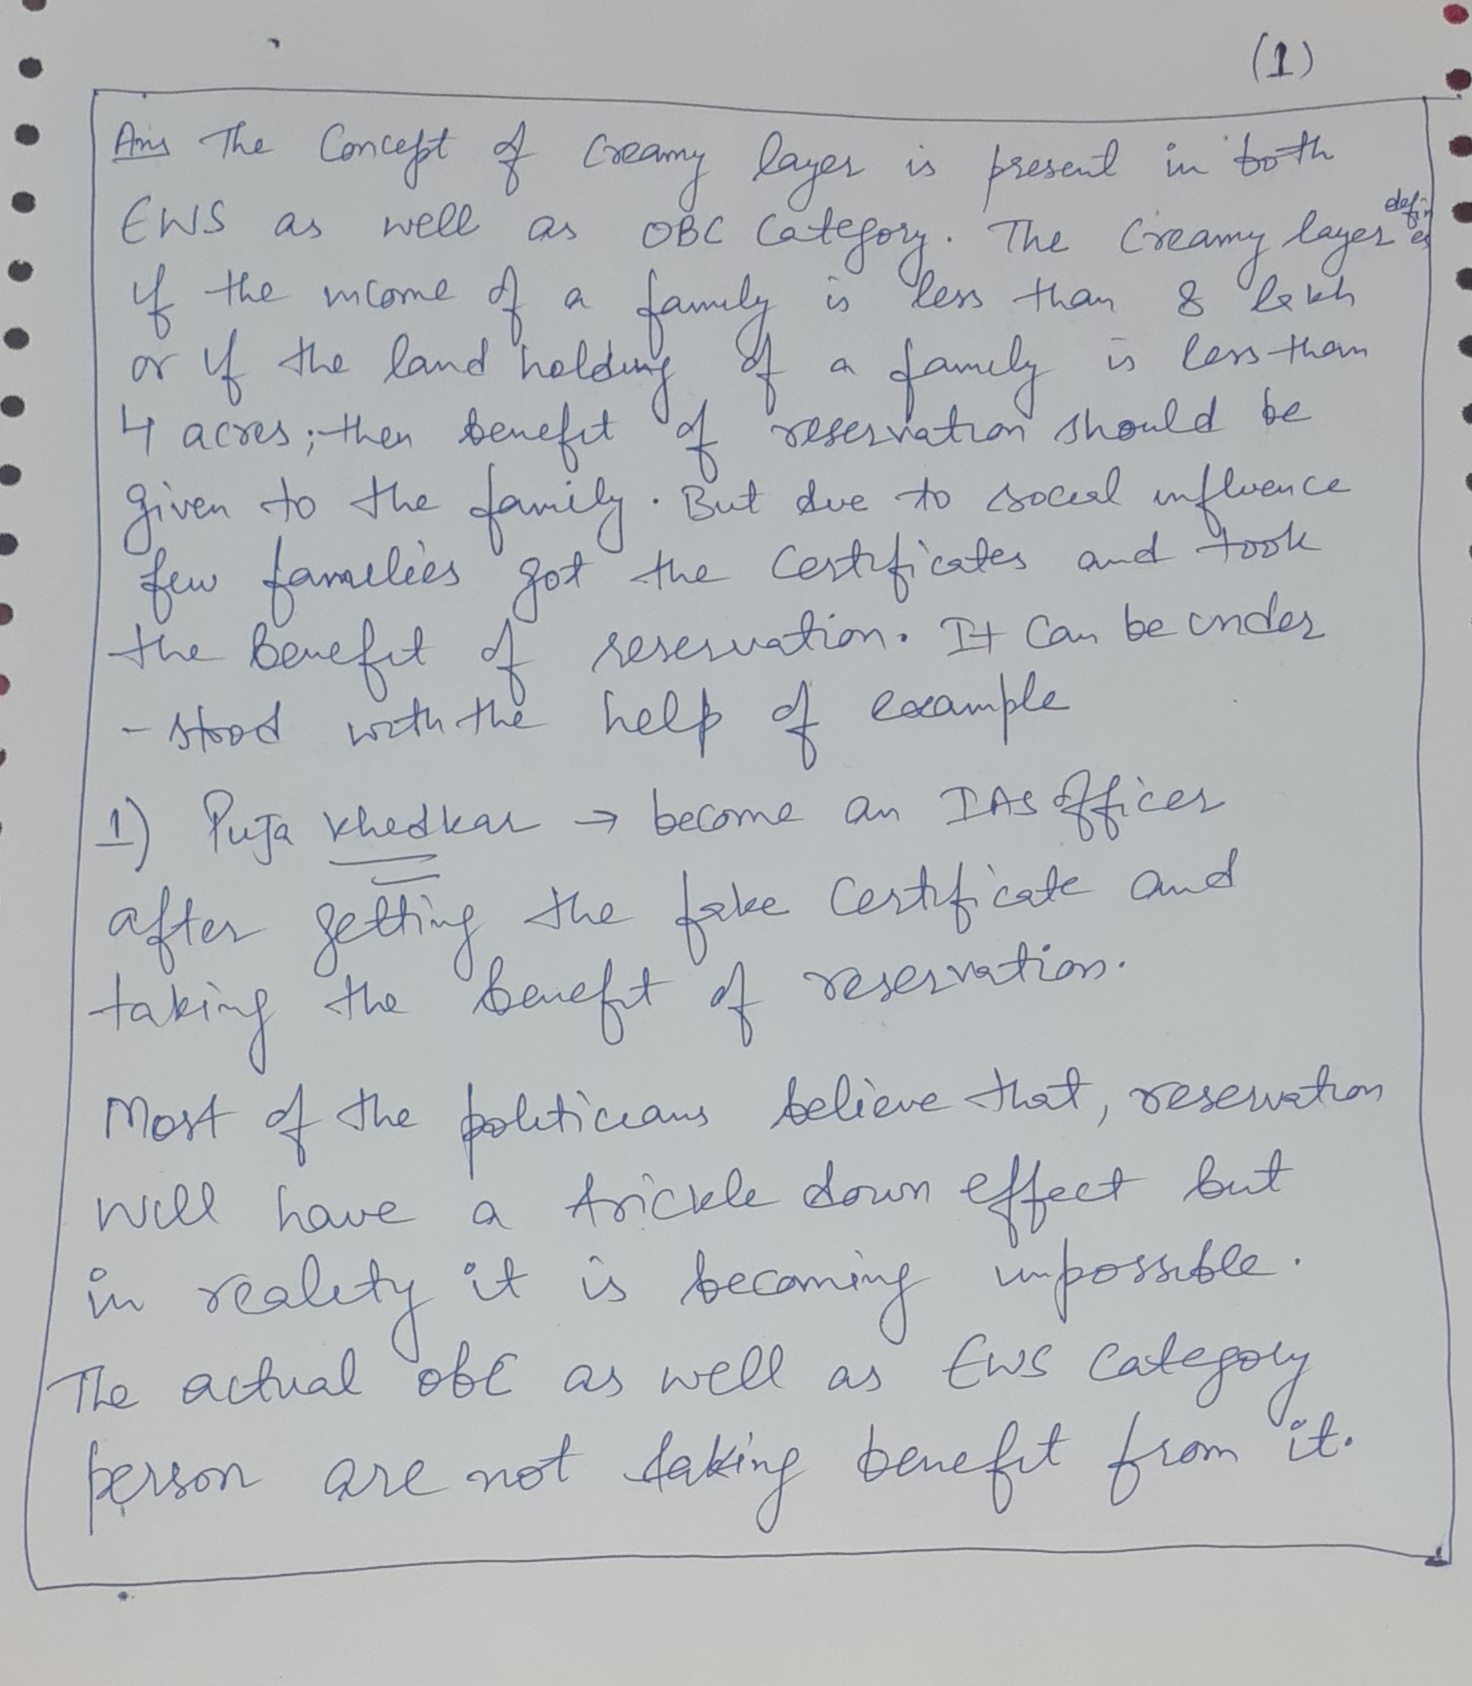 (1)
Ans The Concept of Creamy layer is present in both
EWS as well as OBC Category. The Creamy layer defines
if the income of a family is less than 8 lakh
or if the land holding of a family is less than
4 acres; then benefit of reservation should be
given to the family. But due to social influence
few families got the Certificates and took
the benefit of reservation. It Can be under
- stood with the help of example
1) Puja Khedkar → become an IAS Officer
after getting the fake Certificate and
taking the benefit of reservation.
Most of the politicians believe that, reservation
will have a trickle down effect but
in reality it is becoming impossible.
The actual OBC as well as EWS Category
person are not taking benefit from it.